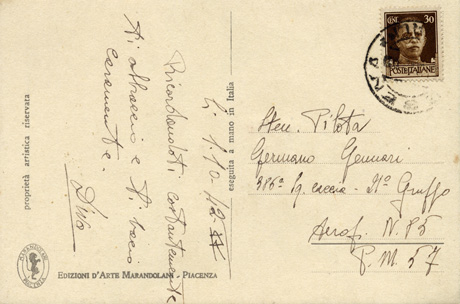 CENT. 30
POSTE ITALIANE
proprietà artistica riservata
eseguita a mano in Italia
lì 1.10.42
Ricordandoti costantemente
ti abbraccio e ti bacio
caramente.
Dino
Sten. Pilota
Germano Gennari
386ª Sq. caccia - 21º Gruppo
Aerop. N. 85
P. M. 57
EDIZIONI D'ARTE MARANDOLANI - PIACENZA